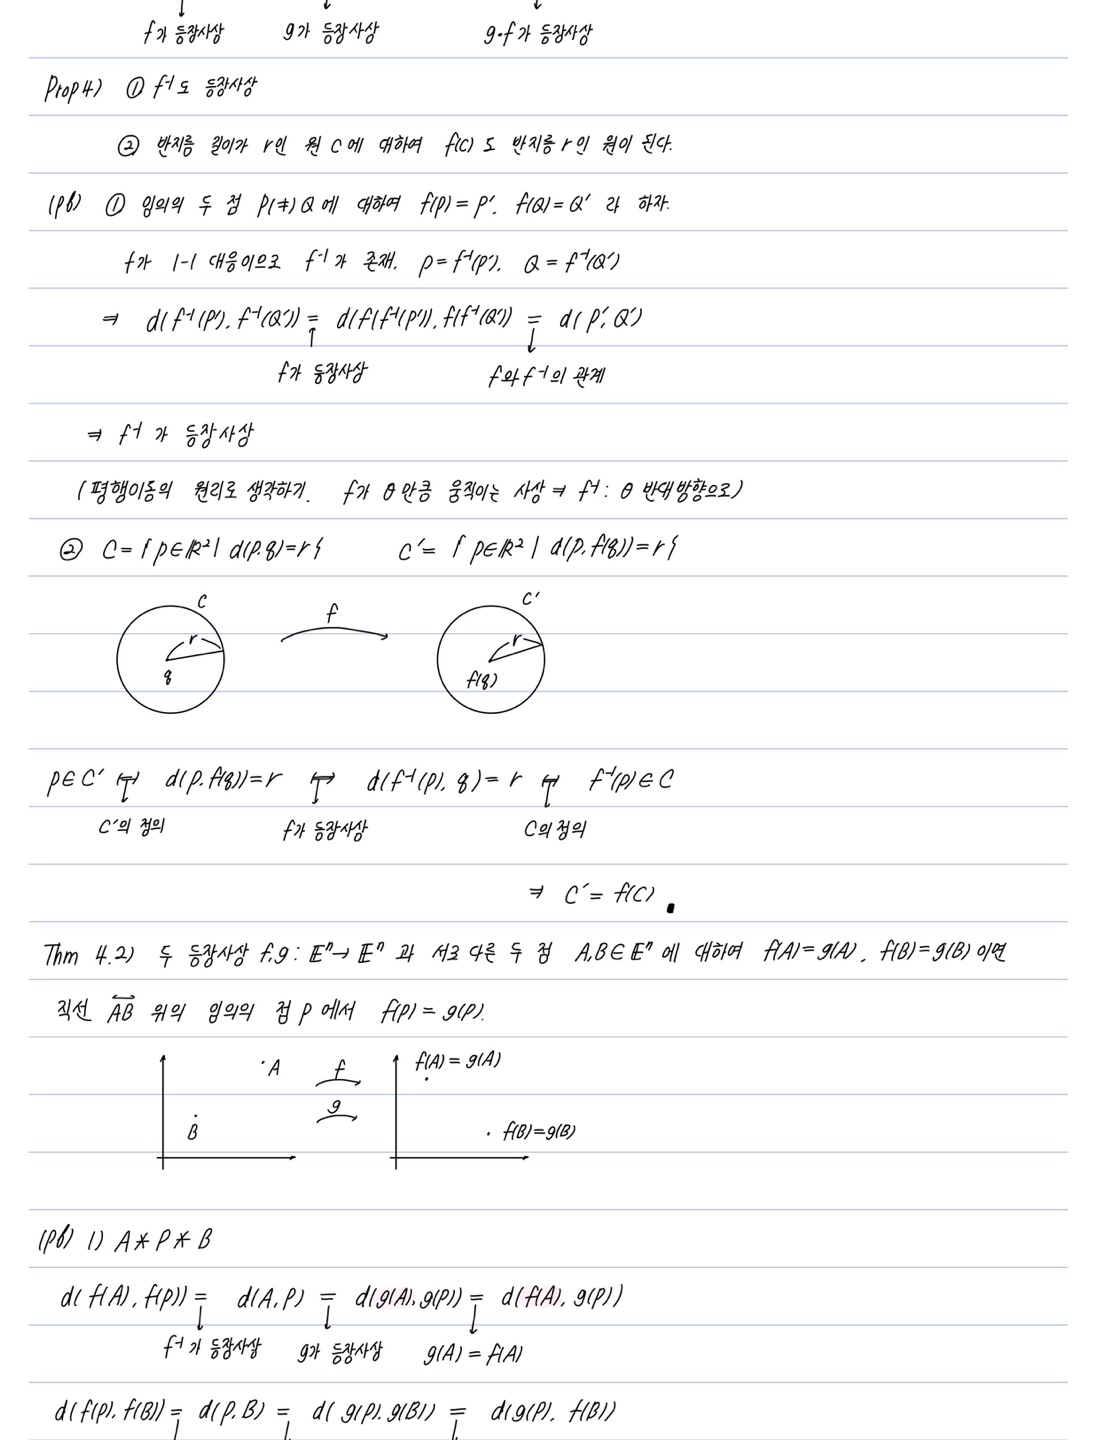 f가 등장사상 g가 등장사상 g∘f가 등장사상
Prop4) ① f⁻¹도 등장사상
② 반지름 길이가 r인 원 C에 대하여 f(C)도 반지름 r인 원이 된다.
(pf) ① 임의의 두 점 P(≠)Q에 대하여 f(P)=P′, f(Q)=Q′ 라 하자.
f가 1-1 대응이므로 f⁻¹가 존재. P=f⁻¹(P′), Q=f⁻¹(Q′)
⇒ d(f⁻¹(P′), f⁻¹(Q′)) = d(f(f⁻¹(P′)), f(f⁻¹(Q′))) = d(P′, Q′)
f가 등장사상 f와 f⁻¹의 관계
⇒ f⁻¹가 등장사상
(평행이동의 원리로 생각하기. f가 θ만큼 움직이는 사상 ⇒ f⁻¹: θ 반대방향으로)
② C={p∈ℝ²| d(p,q)=r} C′={p∈ℝ²| d(p,f(q))=r}
C f C′
r r
q f(q)
p∈C′ ↔ d(p,f(q))=r ↔ d(f⁻¹(p), q)=r ↔ f⁻¹(p)∈C
C′의 정의 f가 등장사상 C의 정의
⇒ C′=f(C) ■
Thm 4.2) 두 등장사상 f,g: 𝔼ⁿ→𝔼ⁿ 과 서로 다른 두 점 A,B∈𝔼ⁿ에 대하여 f(A)=g(A), f(B)=g(B)이면
직선 AB 위의 임의의 점 P에서 f(P)=g(P).
A f f(A)=g(A)
B g f(B)=g(B)
(pf) 1) A*P*B
d(f(A), f(P)) = d(A,P) = d(g(A),g(P)) = d(f(A), g(P))
f⁻¹가 등장사상 g가 등장사상 g(A)=f(A)
d(f(P), f(B)) = d(P,B) = d(g(P),g(B)) = d(g(P), f(B))